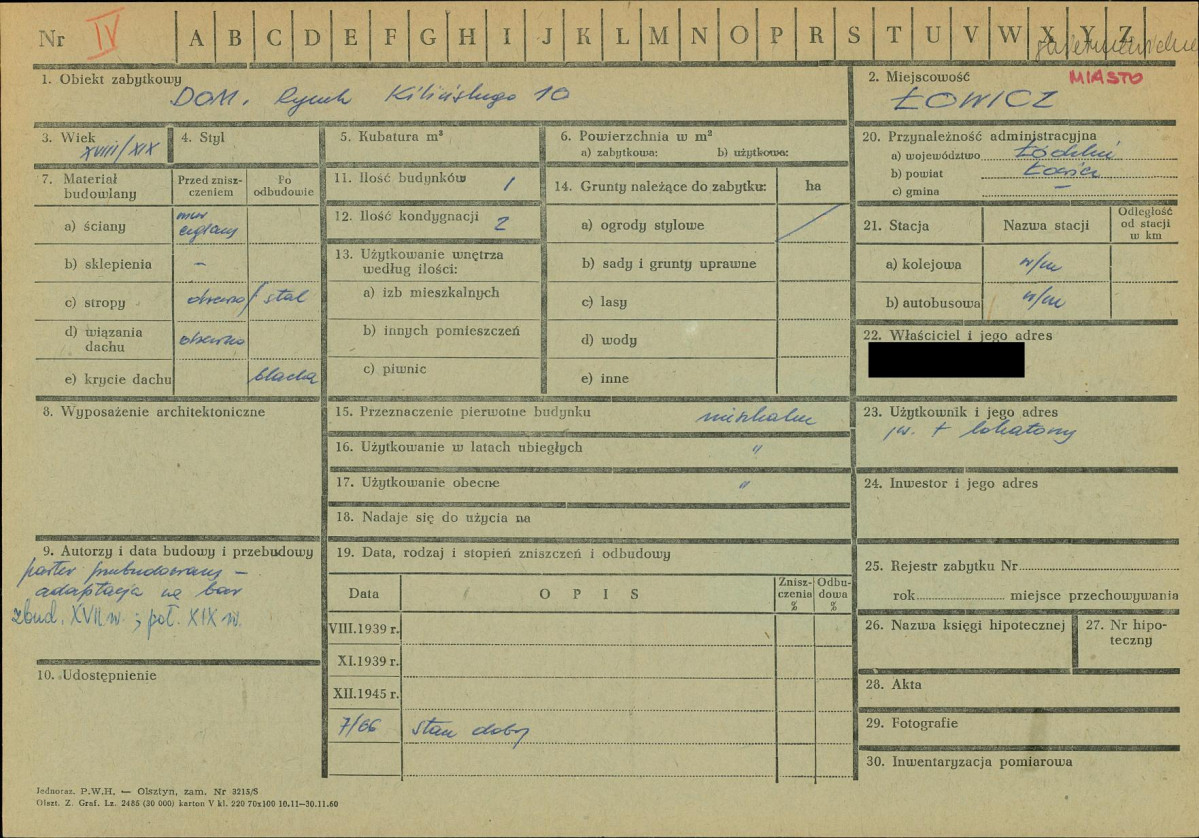 Nr IV A B C D E F G H I J K L M N O P R S T U V W X Y Z
1. Obiekt zabytkowy
DOM. Rynek Kilińskiego 10
2. Miejscowość MIASTO
ŁOWICZ
3. Wiek
XVIII/XIX
4. Styl
5. Kubatura m³
6. Powierzchnia w m²
a) zabytkowa: b) użytkowa:
7. Materiał budowlany
Przed zniszczeniem
Po odbudowie
a) ściany mur ceglany
b) sklepienia –
c) stropy drewno / stal
d) wiązania dachu drewno
e) krycie dachu blacha
8. Wyposażenie architektoniczne
9. Autorzy i data budowy i przebudowy
parter przebudowany –
adaptacja na bar
zbud. XVII w. ; poł. XIX w.
10. Udostępnienie
11. Ilość budynków 1
12. Ilość kondygnacji 2
13. Użytkowanie wnętrza
według ilości:
a) izb mieszkalnych
b) innych pomieszczeń
c) piwnic
14. Grunty należące do zabytku: ha
a) ogrody stylowe
b) sady i grunty uprawne
c) lasy
d) wody
e) inne
15. Przeznaczenie pierwotne budynku mieszkalne
16. Użytkowanie w latach ubiegłych "
17. Użytkowanie obecne "
18. Nadaje się do użycia na
19. Data, rodzaj i stopień zniszczeń i odbudowy
Data O P I S Zniszczenia % Odbudowa %
VIII.1939 r.
XI.1939 r.
XII.1945 r.
7/66 stan dobry
20. Przynależność administracyjna
a) województwo Łódzkie
b) powiat Łowicz
c) gmina –
21. Stacja Nazwa stacji Odległość od stacji w km
a) kolejowa w/m
b) autobusowa w/m
22. Właściciel i jego adres
23. Użytkownik i jego adres
jw. + lokatorzy
24. Inwestor i jego adres
25. Rejestr zabytku Nr
rok miejsce przechowywania
26. Nazwa księgi hipotecznej
27. Nr hipo-
teczny
28. Akta
29. Fotografie
30. Inwentaryzacja pomiarowa
Jednoraz. P.W.H. — Olsztyn, zam. Nr 3215/S
Olszt. Z. Graf. Lz. 2485 (30 000) karton V kl. 220 70x100 10.11—30.11.60